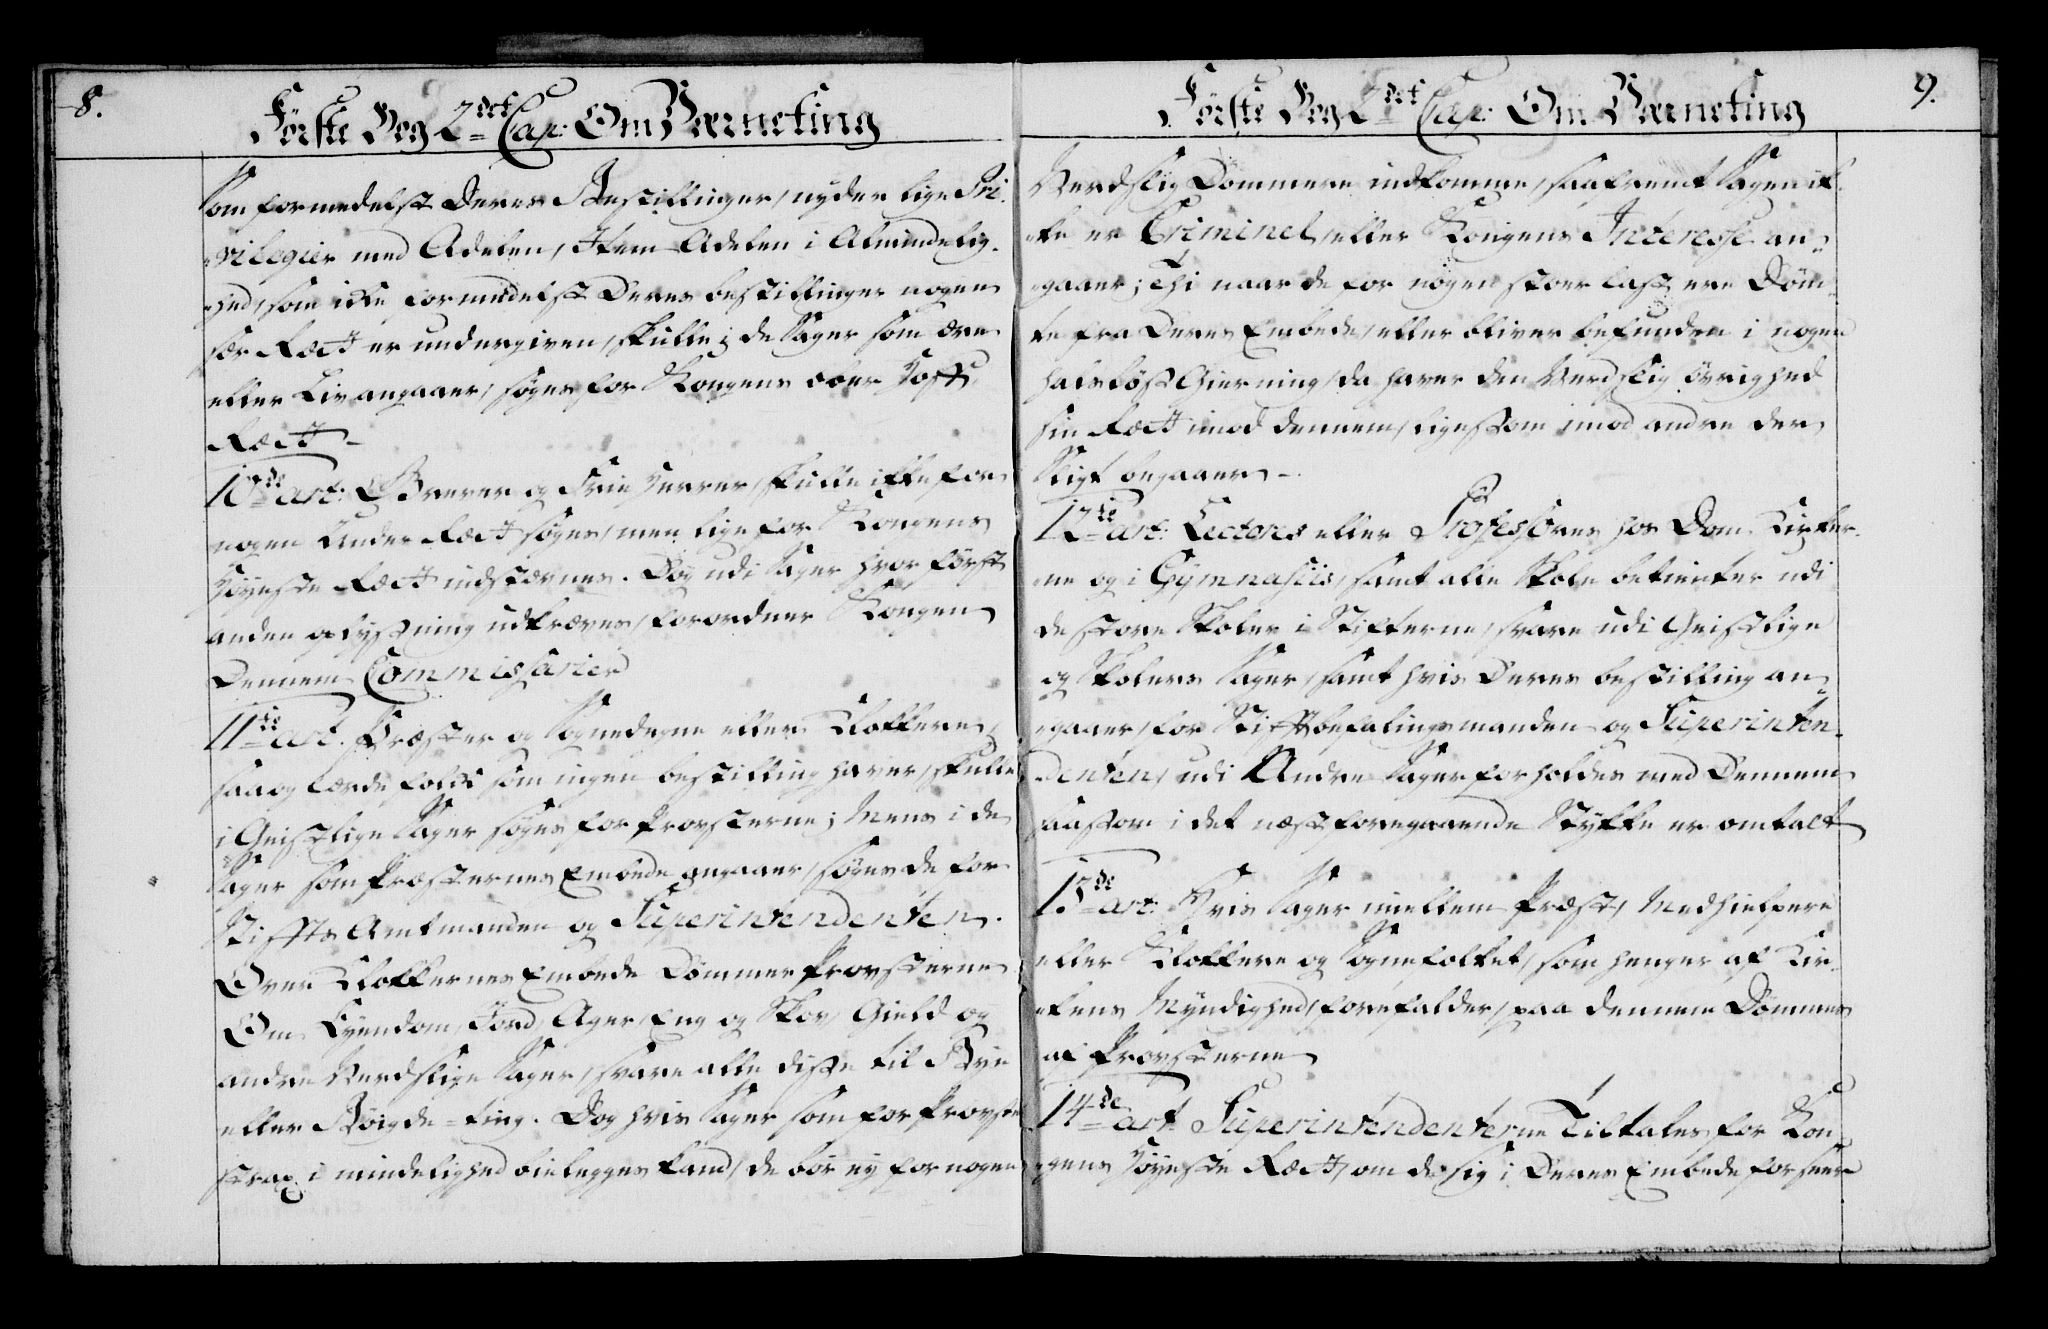 8.
Förste Bog 2det Cap: Om Værneting
som formedelst deres Bestillinger, nyder lige Pri-
vilegier med Adelen, Item Adelen i Almindelig-
hed, som icke formedelst deres bestillinger nogen
sær Ræt er undergiven, skulle i de Sager som ære
eller Liv angaaer, søges for Kongens over Hoff
Ræt
10de art: Grever og Frie Herrer, skulle ikke for
nogen Under Ræt søges, men lige for Kongens
Høyeste Ræt indstævnes. Dog udi Sager hvor først
anden oplysning udkræves, forordner Kongen
Dennem Commissarier
11te art. Præster og Sognedegne eller Klokkere,
saa og lærde folck som ingen bestilling haver, skulle
i Geistlige Sager søges for Provsterne; Mens i de
Sager som Præsternes Embede angaaer, søges de for
Stiffts Amtmanden og Superintendenten.
Over Klokkernes Embede Dömmer Provsterne
Om Eyendom, Jord, Ager, Eng og Skov, Gield og
andre Verdslige Sager, svare alle disse til Bye
eller Böigde-ting. Dog hvis Sager som for Provste
strax i mindelighed bielegges kand, de bör ey for nogen
9.
Förste Bog 2det Cap: Om Værneting
Verdslig Dommere indkomme, saafremt Sagen ik-
ke er Criminel, eller Kongens Interesse an-
gaaer; Thi naar de for nogen stoer last ere Döm-
te fra Deres Embede, eller bliver befunden i nogen
halslöss Gierning, da haver den Verdslig övrighed
sin Ræt imod dennem, ligesom imod andre der
Sligt begaaer.
12te art: Lectores eller Professores hos Dom-Kirker-
ne og i Gymnasiis, samt alle Skole betienter udi
de store Skoler i Stifterne, svare udi Geistlige
og Skolens Sager, samt hvis Deres bestilling an-
gaaer, for Stiftbefalingsmanden og Superinten-
denten, udi Andre Sager forholdes med Dennem
saasom i det næst foregaaende Stykke er omtalt
13de art: Hvis Sager imellem Præst, Medhielpere
eller Klokkere og Sognefolket, som henger af Kir-
kens Myndighed, forefalder, paa dennem Dömmes
af Provsterne
14de art Superintendenterne Tiltales for Kon-
gens Høyeste Ræt, om de sig i Deres Embede forseer